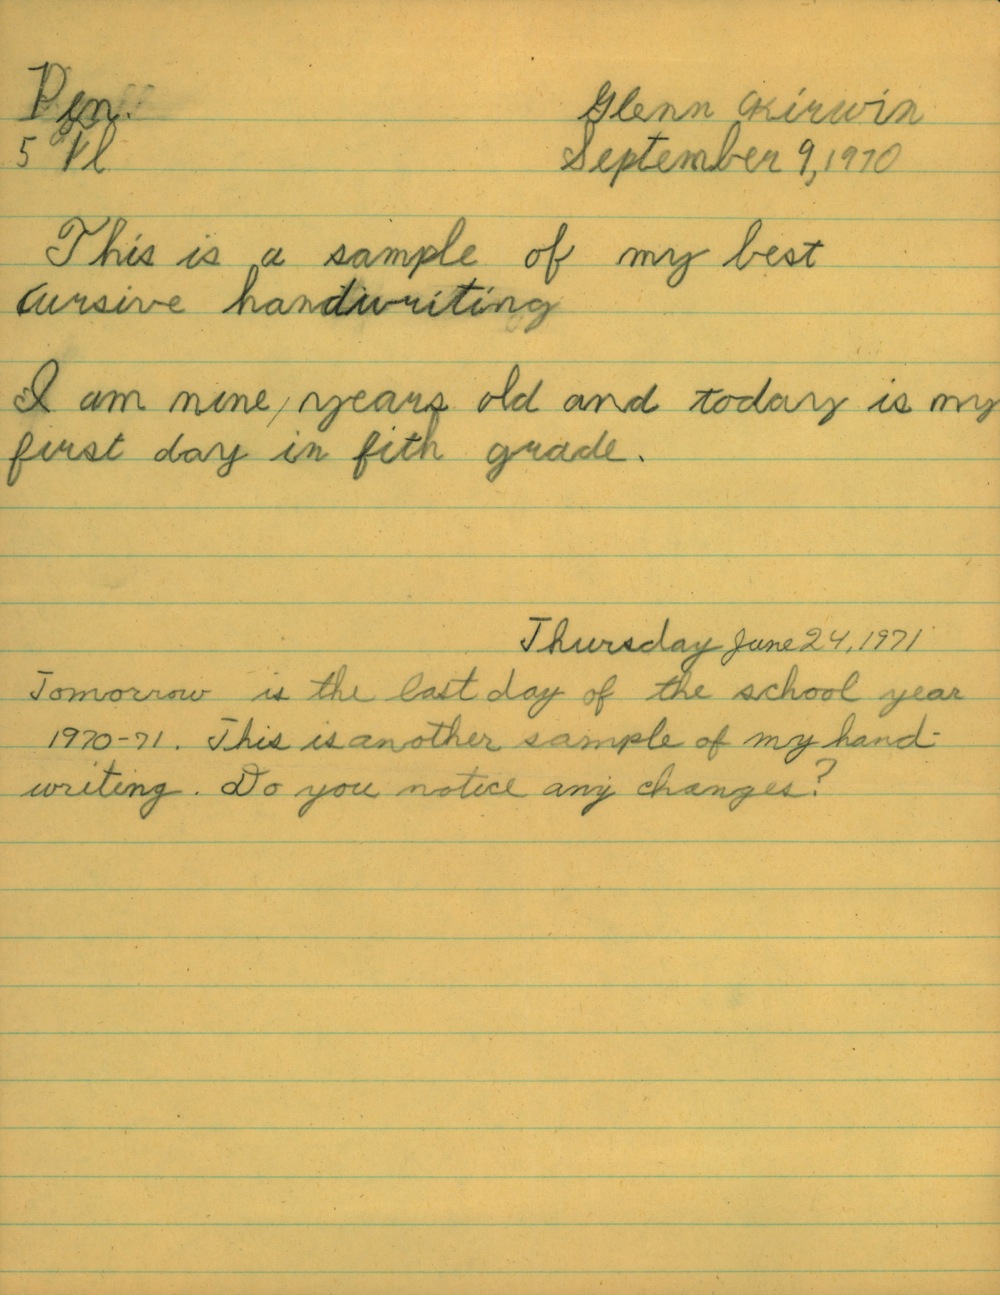 Pen.
Glenn Kirwin
5
September 9, 1970
This is a sample of my best
Cursive handwriting
I am nine, years old and today is my
first day in fith grade.
Thursday June 24, 1971
Tomorrow is the last day of the school year
1970-71. This is another sample of my hand-
writing. Do you notice any changes?